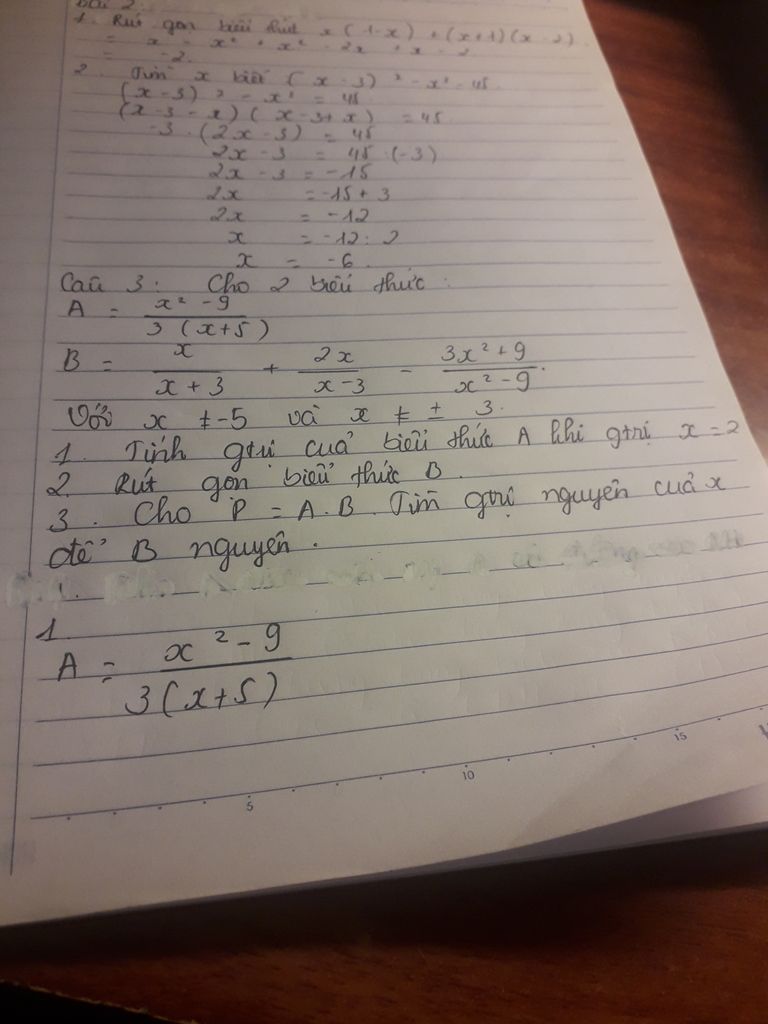 Bài 2:
1. Rút gọn biểu thức x(1-x) + (x+1)(x-2)
= x - x² + x² - 2x + x - 2
= -2.
2. Tìm x biết (x-3)² - x² = 45
(x-3)² - x² = 45
(x-3-x)(x-3+x) = 45
-3.(2x-3) = 45
2x-3 = 45:(-3)
2x-3 = -15
2x = -15+3
2x = -12
x = -12:2
x = -6.
Câu 3: Cho 2 biểu thức:
A = \frac{x²-9}{3(x+5)}
B = \frac{x}{x+3} + \frac{2x}{x-3} - \frac{3x²+9}{x²-9}.
Với x ≠ -5 và x ≠ ± 3.
1. Tính gtrị của biểu thức A khi gtrị x = 2
2. Rút gọn biểu thức B.
3. Cho P = A.B. Tìm gtrị nguyên của x
để B nguyên.
1.
A = \frac{x²-9}{3(x+5)}
5 10 15